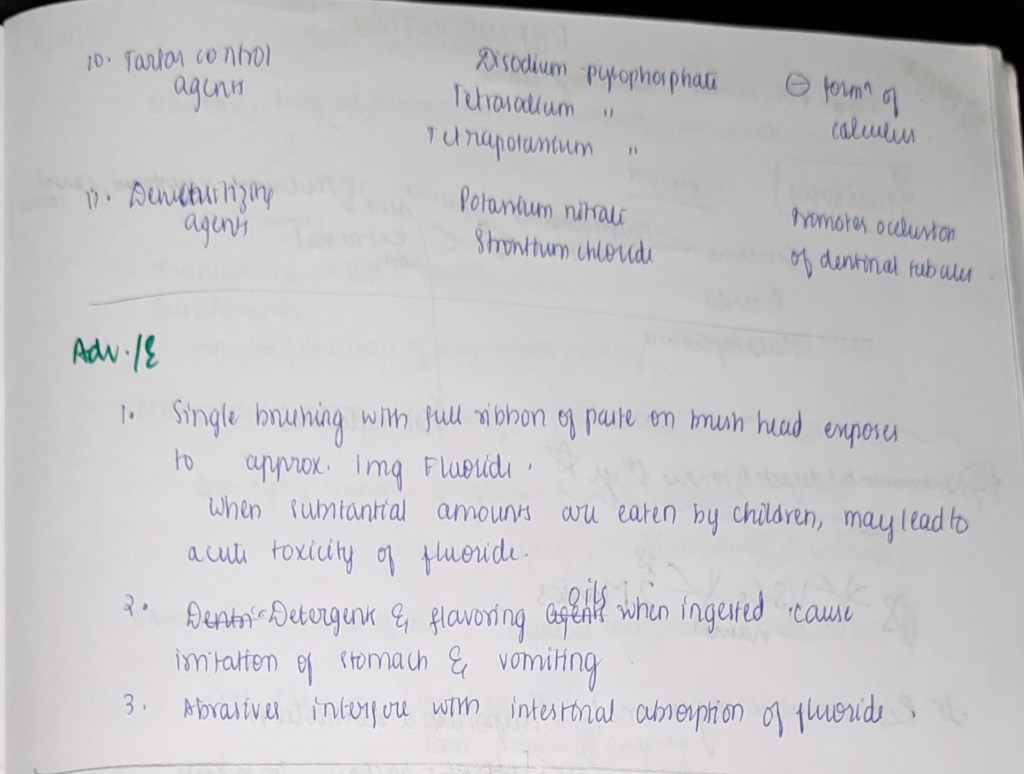 10. Tartar control Disodium pyrophosphate ⊖ formⁿ of
agents Tetrasodium " calculus.
Tetrapotassium "
11. Densensitizing Potassium nitrate Promotes occlusion
agents Strontium chloride of dentinal tubules.
Adv./E
1. Single brushing with full ribbon of paste on brush head exposes
to approx. 1mg Fluoride.
When substantial amounts are eaten by children, may lead to
acute toxicity of fluoride.
2. Detergents & flavoring oils when ingested cause
irritation of stomach & vomiting
3. Abrasives interfere with intestinal absorption of fluoride.